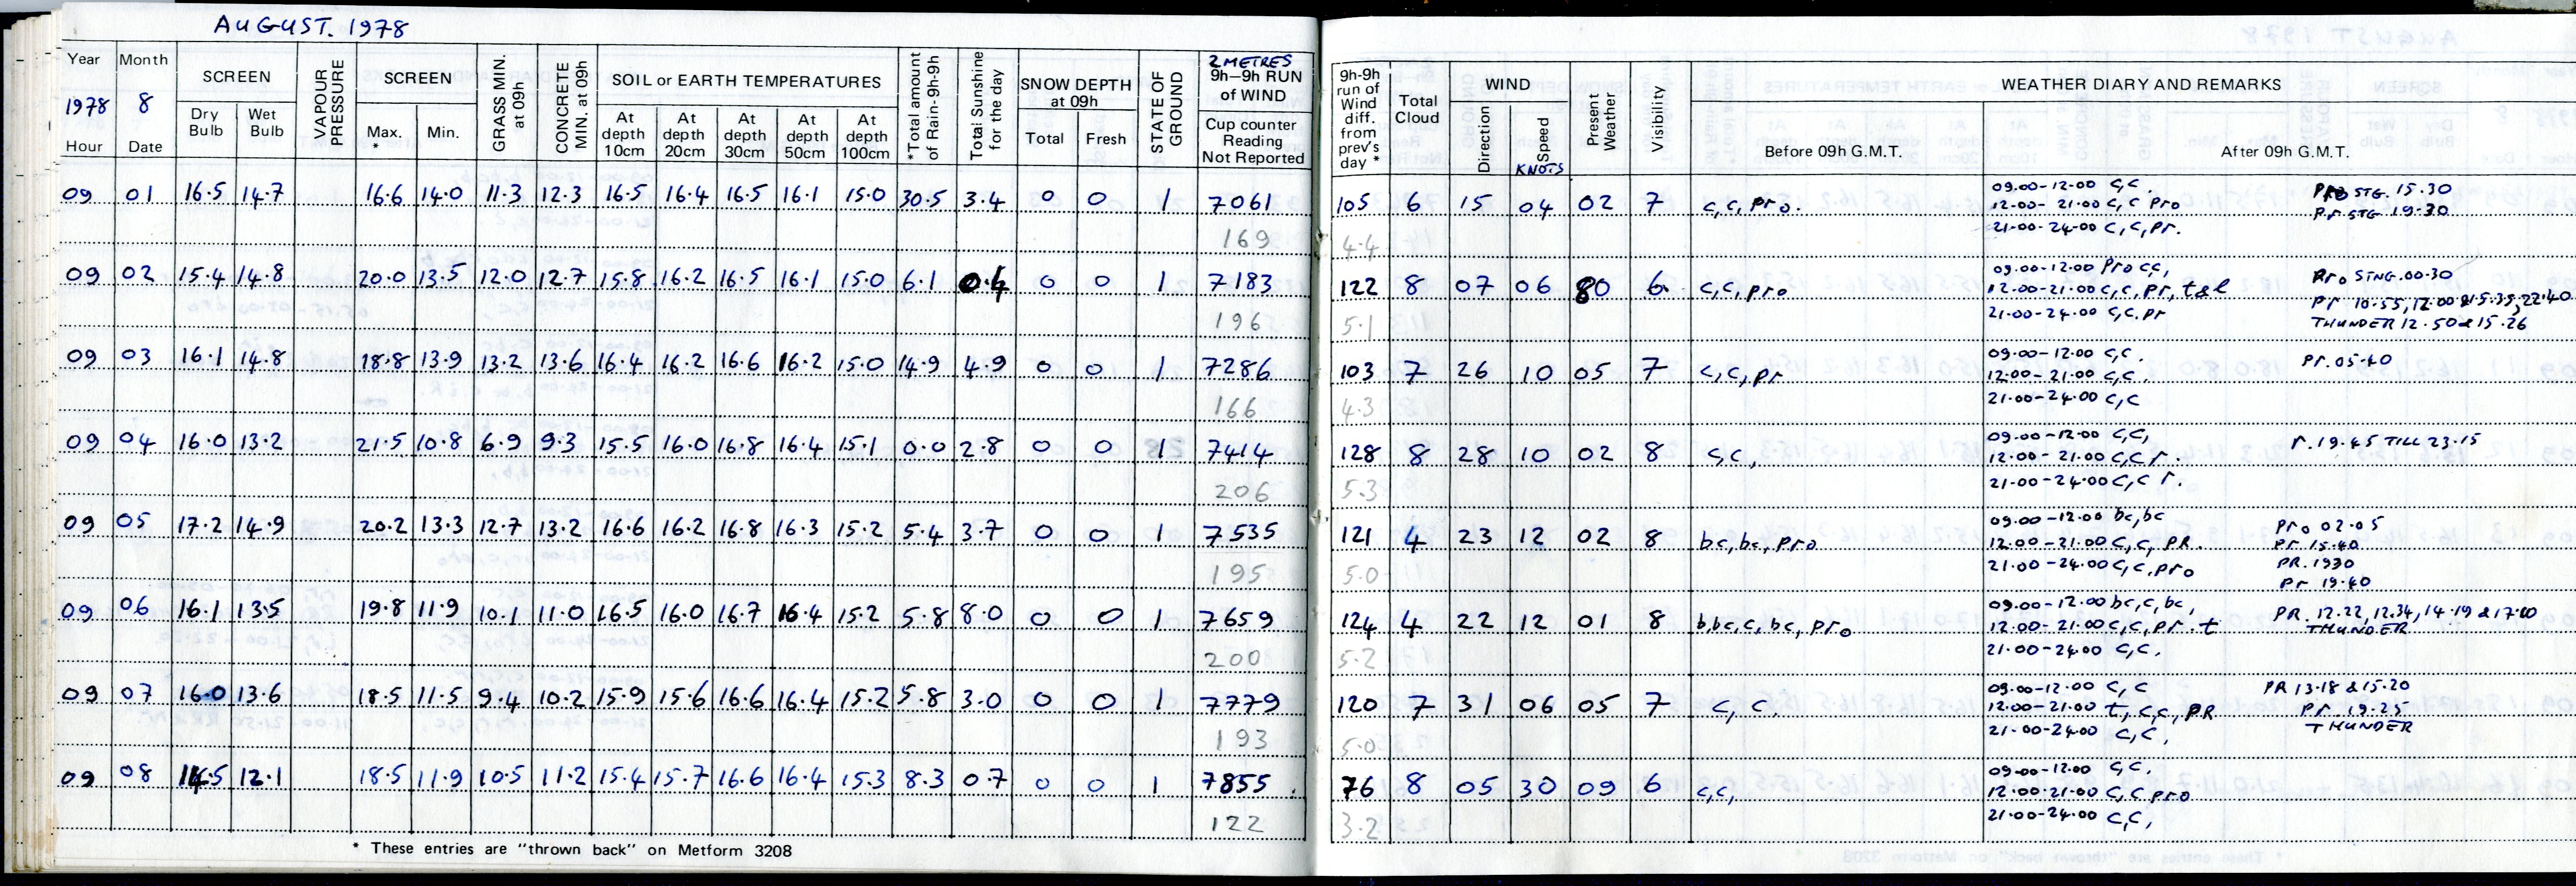 AUGUST. 1978
Year Month SCREEN VAPOUR PRESSURE SCREEN GRASS MIN. at 09h CONCRETE MIN. at 09h SOIL or EARTH TEMPERATURES *Total amount of Rain-9h-9h Total Sunshine for the day SNOW DEPTH at 09h STATE OF GROUND 2 METRES 9h–9h RUN of WIND
1978 8 Dry Bulb Wet Bulb Max. * Min. At depth 10cm At depth 20cm At depth 30cm At depth 50cm At depth 100cm Total Fresh Cup counter Reading Not Reported
Hour Date
09 01 16.5 14.7 16.6 14.0 11.3 12.3 16.5 16.4 16.5 16.1 15.0 30.5 3.4 0 0 1 7061
169
09 02 15.4 14.8 20.0 13.5 12.0 12.7 15.8 16.2 16.5 16.1 15.0 6.1 0.4 0 0 1 7183
196
09 03 16.1 14.8 18.8 13.9 13.2 13.6 16.4 16.2 16.6 16.2 15.0 14.9 4.9 0 0 1 7286
166
09 04 16.0 13.2 21.5 10.8 6.9 9.3 15.5 16.0 16.8 16.4 15.1 0.0 2.8 0 0 1 7414
206
09 05 17.2 14.9 20.2 13.3 12.7 13.2 16.6 16.2 16.8 16.3 15.2 5.4 3.7 0 0 1 7535
195
09 06 16.1 13.5 19.8 11.9 10.1 11.0 16.5 16.0 16.7 16.4 15.2 5.8 8.0 0 0 1 7659
200
09 07 16.0 13.6 18.5 11.5 9.4 10.2 15.9 15.6 16.6 16.4 15.2 5.8 3.0 0 0 1 7779
193
09 08 14.5 12.1 18.5 11.9 10.5 11.2 15.4 15.7 16.6 16.4 15.3 8.3 0.7 0 0 1 7855
122
* These entries are "thrown back" on Metform 3208
9h-9h run of Wind diff. from prev's day * Total Cloud WIND Present Weather Visibility WEATHER DIARY AND REMARKS
Direction Speed KNOTS Before 09h G.M.T. After 09h G.M.T.
105 6 15 04 02 7 c,c, pro.
4.4
09.00-12.00 c,c.
12.00-21.00 c,c pro
21.00-24.00 c,c, pr.
STG. 15.30
Pr STG 19.30
122 8 07 06 80 6 c,c, pro
5.1
09.00-12.00 pro cc,
12.00-21.00 c,c, pr, t&l
21.00-24.00 c,c. pr
Pro STNG. 00.30
Pr 10.55, 12.00 & 15.35, 22.40
THUNDER 12.50 & 15.26
103 7 26 10 05 7 c,c, pr
4.3
09.00-12.00 c,c.
12.00-21.00 c,c.
21.00-24.00 c,c
Pr. 05.40
128 8 28 10 02 8 c,c,
5.3
09.00-12.00 c,c,
12.00-21.00 c,c r.
21.00-24.00 c,c r.
r. 19.45 TILL 23.15
121 4 23 12 02 8 bc, bc, pro
5.0
09.00-12.00 bc, bc
12.00-21.00 c,c, PR.
21.00-24.00 c,c, pro
Pro 02.05
Pr 15.40
PR. 1930
Pr 19.40
124 4 22 12 01 8 b, bc, c, bc, pro
5.2
09.00-12.00 bc, c, bc,
12.00-21.00 c,c, pr. t
21.00-24.00 c,c.
PR. 12.22, 12.34, 14.19 & 17.00
THUNDER
120 7 31 06 05 7 c, c.
5.0
09.00-12.00 c, c
12.00-21.00 t, c,c, PR
21.00-24.00 c,c,
PR 13.18 & 15.20
Pr 19.25
THUNDER
76 8 05 30 09 6 c,c,
3.2
09.00-12.00 c,c.
12.00-21.00 c,c pro
21.00-24.00 c,c,